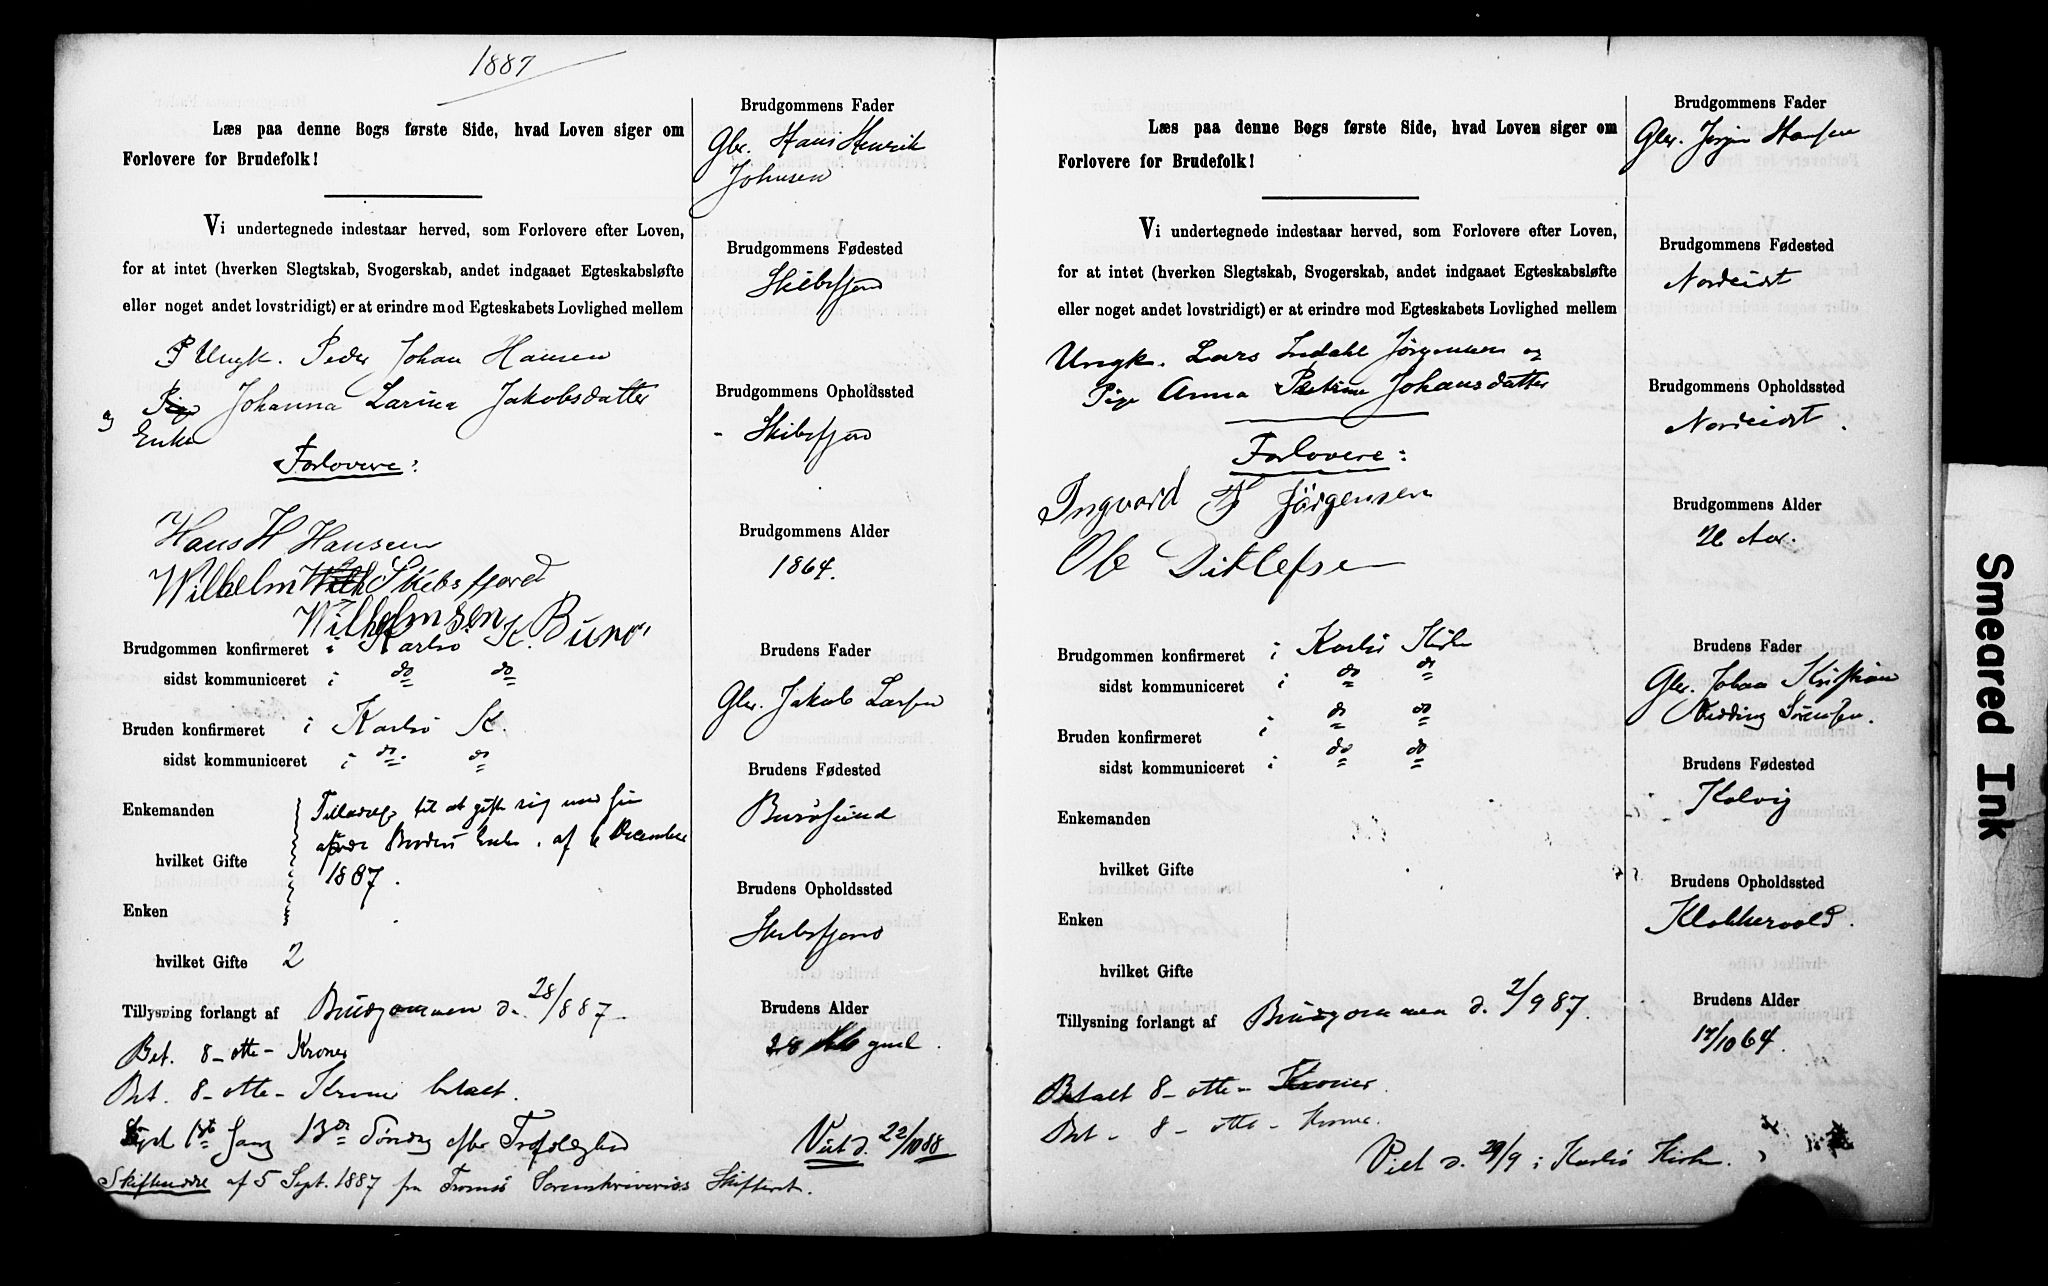 1887
Læs paa denne Bogs første Side, hvad Loven siger om
Forlovere for Brudefolk!
Vi undertegnede indestaar herved, som Forlovere efter Loven,
for at intet (hverken Slegtskab, Svogerskab, andet indgaaet Egteskabsløfte
eller noget andet lovstridigt) er at erindre mod Egteskabets Lovlighed mellem
Ungk. Peder Johan Hansen
og Pige Johanna Larina Jakobsdatter
Enke
Forlovere:
Hans H Hansen
Wilhelm Skibsfjord
Wilhelmsen
Brudgommen konfirmeret i Karlsö K.
sidst kommuniceret i do do
Bruden konfirmeret i Karlsö K.
sidst kommuniceret i do. do
Enkemanden Tilladelse til at gifte sig med sin
hvilket Gifte afdöde Broders Enke. af 6 December
1887.
Enken
hvilket Gifte 2
Tillysning forlangt af Brudgommen d. 28/887.
Bet. 8 - otte - Kroner
Bet. 8 - otte - Kroner betalt.
Lyst 1ste Gang 13de Söndag efter Trefoldighed
Skifteadde af 5 Sept. 1887 fra Tromsö Sorenskriveriets Skifteret.
Brudgommens Fader
Gbr. Hans Henrik
Johnsen
Brudgommens Fødested
Skibsfjord
Brudgommens Opholdssted
- Skibsfjord
Brudgommens Alder
1864.
Brudens Fader
Gbr. Jakob Larsen
Brudens Fødested
Burösund
Brudens Opholdssted
Skibsfjord
Brudens Alder
28 gml.
Viet d. 22/10 88
Læs paa denne Bogs første Side, hvad Loven siger om
Forlovere for Brudefolk!
Vi undertegnede indestaar herved, som Forlovere efter Loven,
for at intet (hverken Slegtskab, Svogerskab, andet indgaaet Egteskabsløfte
eller noget andet lovstridigt) er at erindre mod Egteskabets Lovlighed mellem
Ungk. Lars Indahl Jörgensen og
Pige Anna Petrine Johansdatter
Forlovere:
Ingvard F Jörgensen
Ole Ditlefsen
Brudgommen konfirmeret i Karlsö Kirke
sidst kommuniceret i do do
Bruden konfirmeret i do do
sidst kommuniceret i do do
Enkemanden
hvilket Gifte
Enken
hvilket Gifte
Tillysning forlangt af Brudgommen d. 2/9 87.
Betalt 8 - otte - Kroner.
Bet - 8 - otte - Krone.
Viet d. 29/9 i Karlsö Kirke.
Brudgommens Fader
Gbr. Jörgen Hansen
Brudgommens Fødested
Nordeidet
Brudgommens Opholdssted
Nordeidet.
Brudgommens Alder
26 Aar.
Brudens Fader
Gbr. Johan Kristian
Nidding Sörensen.
Brudens Fødested
Kalvig
Brudens Opholdssted
Klokkervold.
Brudens Alder
17/10 64.
Smeared Ink